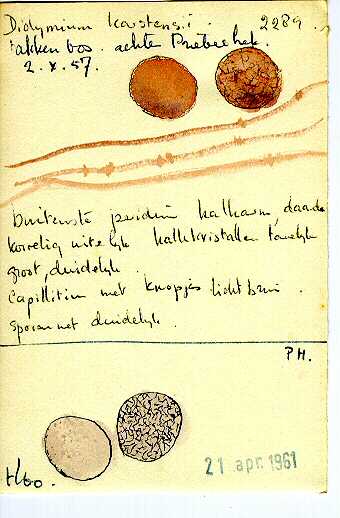 Didymium karstensii. 2289
Takkenbos. achter Priebeehek.
2.X.57.
Buitenste peridium kalkarm, daardoor
korrelig uiterlijk kalkkristallen tamelijk
groot, duidelijk.
Capillitium met knopjes lichtbruin.
Sporen net duidelijk.
PH.
21 apr. 1961